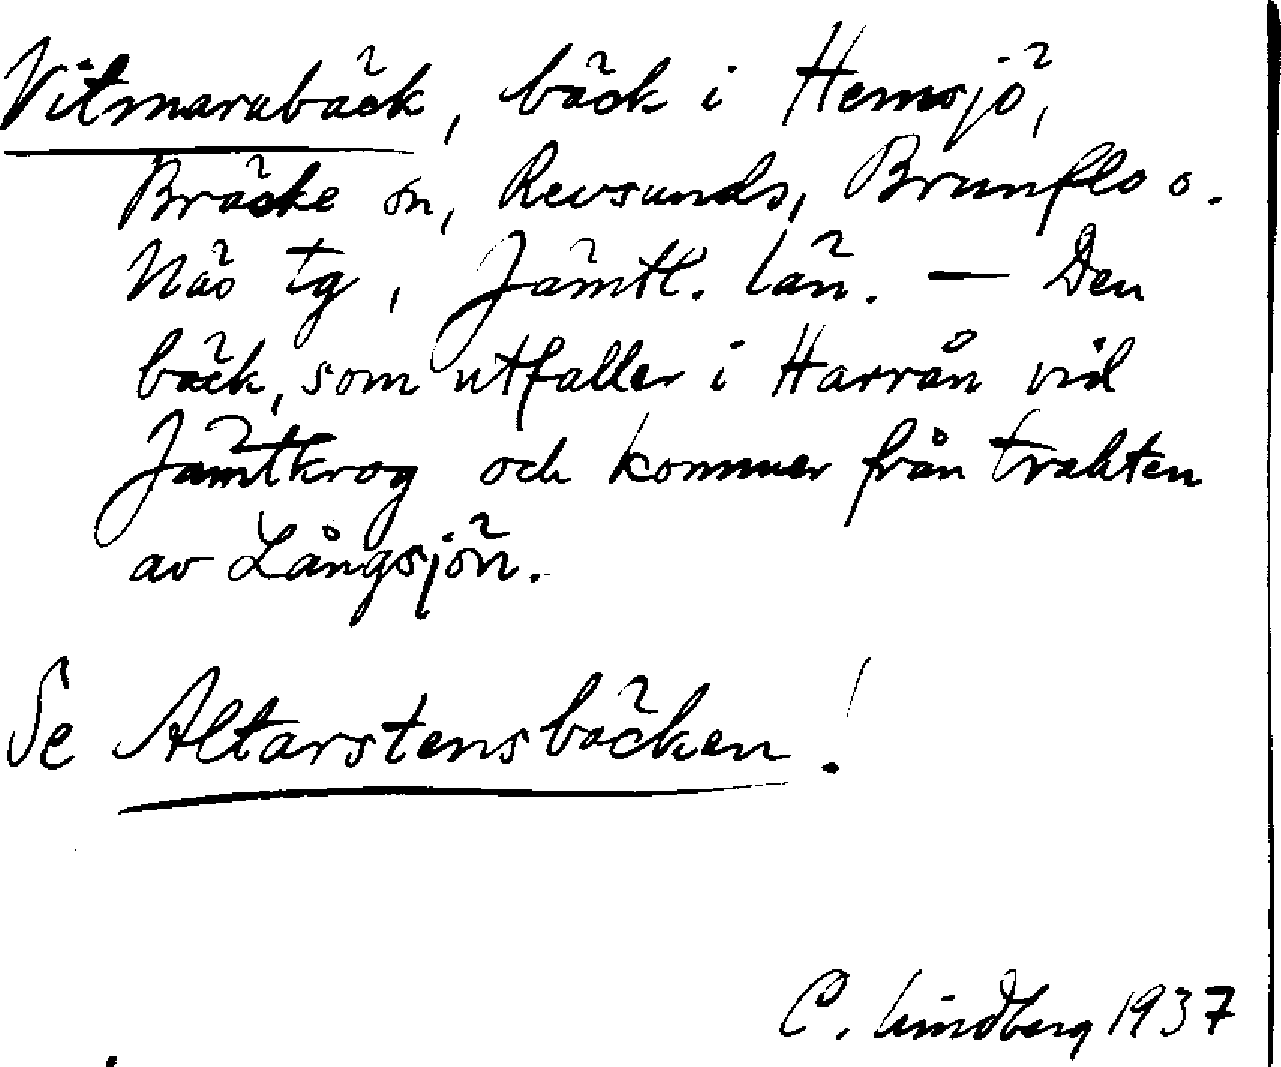 Vitmarabäck, bäck i Hemsjö,
Bräcke sn, Revsunds, Brunflo o.
Näs tg, Jämtl. län. — Den
bäck, som utfaller i Harrån vid
Jämtkrog och kommer från trakten
av Långsjön.
Se Altarstensbäcken!
C. Lindberg 1937